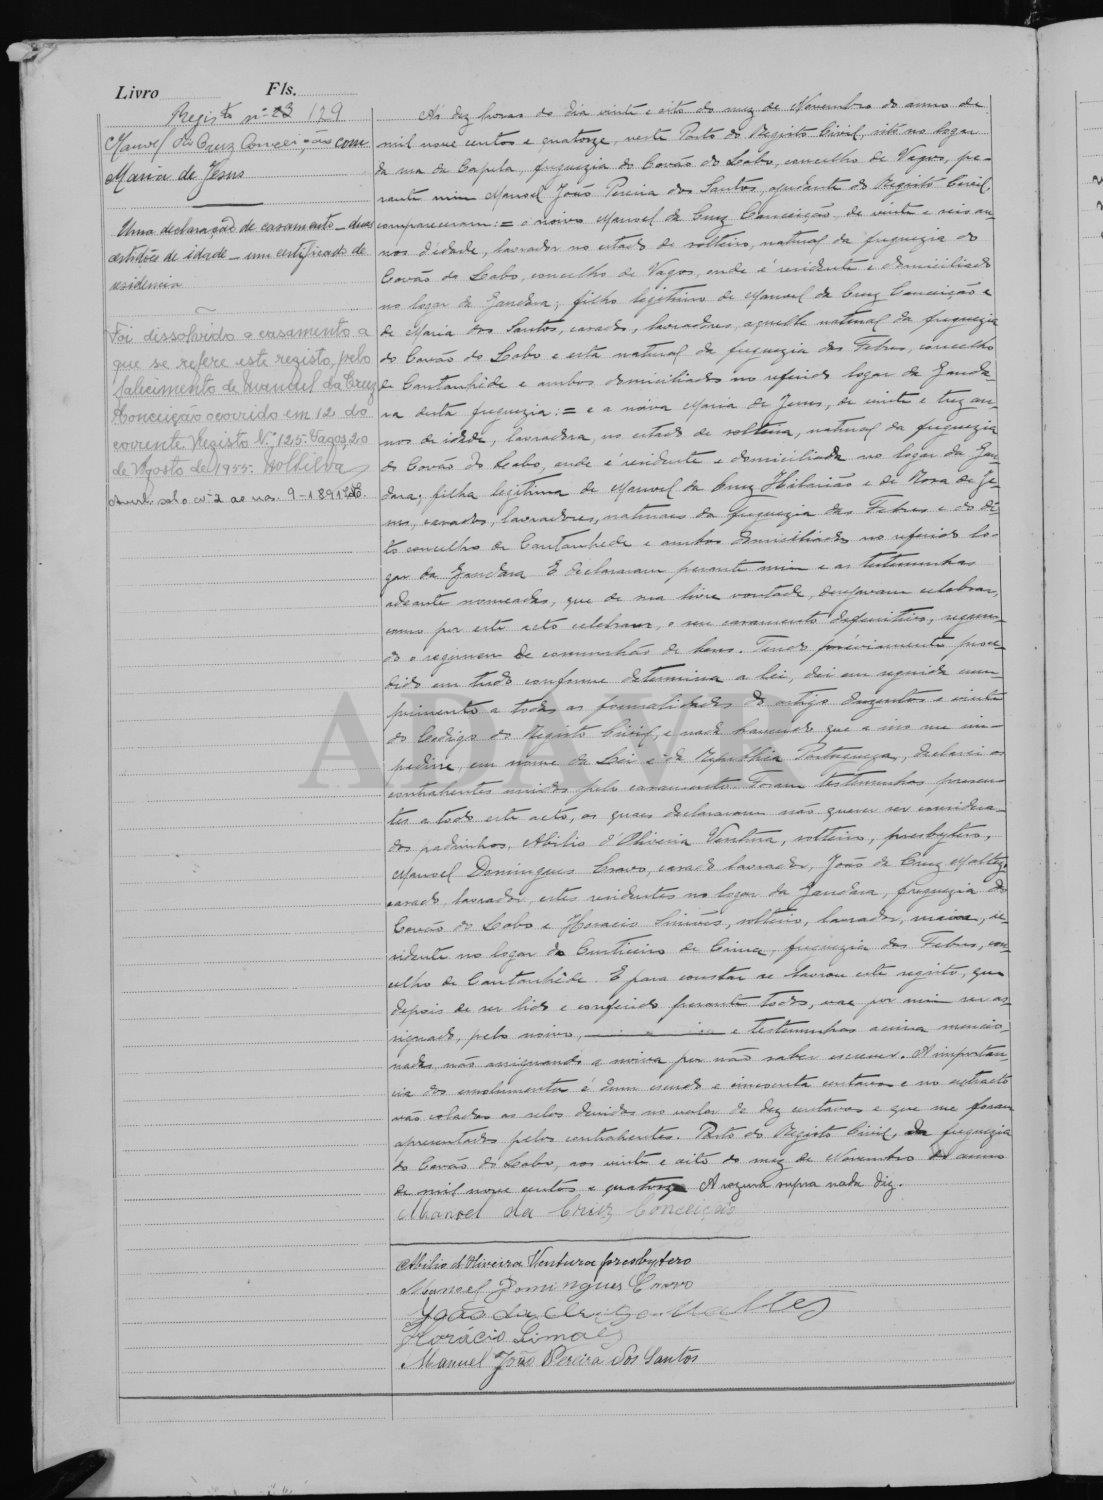 Livro Fls.
Registo nº 23 129
Manoel da Cruz Conceição com
Maria de Jesus
Uma declaração de casamento – duas
certidões de idade – um certificado de
residencia
Foi dissolvido o casamento a
que se refere este registo, pelo
falecimento de Manuel da Cruz
Conceição ocorrido em 12 do
corrente. Registo N.º 125. Vagos, 20
de Agosto de 1955.
Ás dez horas do dia vinte e oito do mez de Novembro do anno de
mil nove centos e quatorze, neste Posto do Registo Civil, sito no logar
da rua da Capela, freguezia do Covão do Lobo, concelho de Vagos, pe-
rante mim Manoel João Pereira dos Santos, ajudante do Registo Civil,
compareceram: = o noivo Manoel da Cruz Conceição, de vinte e seis an-
nos d'edade, lavrador no estado de solteiro, natural da freguezia do
Covão do Lobo, concelho de Vagos, onde é residente e domiciliado
no logar da Gandara; filho legitimo de Manoel da Cruz Conceição e
de Maria dos Santos, casados, lavradores, aquelle natural da freguezia
do Covão do Lobo e esta natural da freguezia das Febres, concelho
de Cantanhêde e ambos domiciliados no referido logar da Ganda-
ra desta freguezia: = e a noiva Maria de Jesus, de vinte e trez an-
nos de idade, lavradora, no estado de solteira, natural da freguezia
do Covão do Lobo, onde é residente e domiciliada no logar da Gan-
dara; filha legitima de Manoel da Cruz Hilarião e de Rosa de Je-
sus, casados, lavradores, naturaes da freguezia das Febres e do di-
to concelho de Cantanhede e ambos domiciliados no referido lo-
gar da Gandara E declararam perante mim e as testemunhas
adeante nomeadas, que de sua livre vontade, desejavam celebrar,
como por este acto celebram, o seu casamento definitivo, segun-
do o regimen de comunhão de bens. Tendo préviamente proce-
dido em tudo conforme determina a lei, dei em seguida cum-
primento a todas as formalidades do artigo duzentos e vinte
do Codigo do Registo Civil, e nada havendo que a isso me im-
pedisse, em nome da Lei e da Republica Portugueza, declarei os
contrahentes unidos pelo casamento. Foram testemunhas presen-
tes a todo este acto, os quaes declararam não querer ser considera-
dos padrinhos, Abilio d'Oliveira Ventura, solteiro, presbytero,
Manoel Domingues Cravo, casado lavrador, João da Cruz Maltez,
casado, lavrador, estes residentes no logar da Gandara, freguezia do
Covão do Lobo e Horacio Simões, solteiro, lavrador, maior, re-
sidente no logar do Corticeiro de Cima, freguezia das Febres, con-
celho de Cantanhêde. E para constar se lavrou este registo, que
depois de ser lido e conferido perante todos, vae por mim ser as-
signado, pelo noivo, e testemunhas acima mencio-
nadas, não assignando a noiva por não saber escrever. A importan-
cia dos emolumentos é dum escudo e cincoenta centavos e no extracto
vão colados os selos devidos no valor de dez centavos e que me foram
apresentados pelos contrahentes. Posto do Registo Civil, da freguezia
do Covão do Lobo, aos vinte e oito do mez de Novembro do anno
de mil nove centos e quatorze A razura supra nada diz.
Manoel da Cruz Conceição
Abilio d'Oliveira Ventura presbytero
Manoel Domingues Cravo
João da Cruz Maltez
Horácio Simões
Manuel João Pereira dos Santos
ADAVR